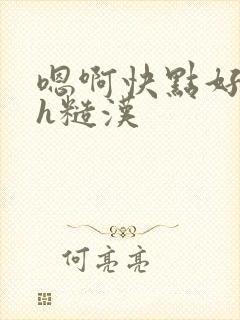 嗯啊快點好
h糙漢
何亮亮